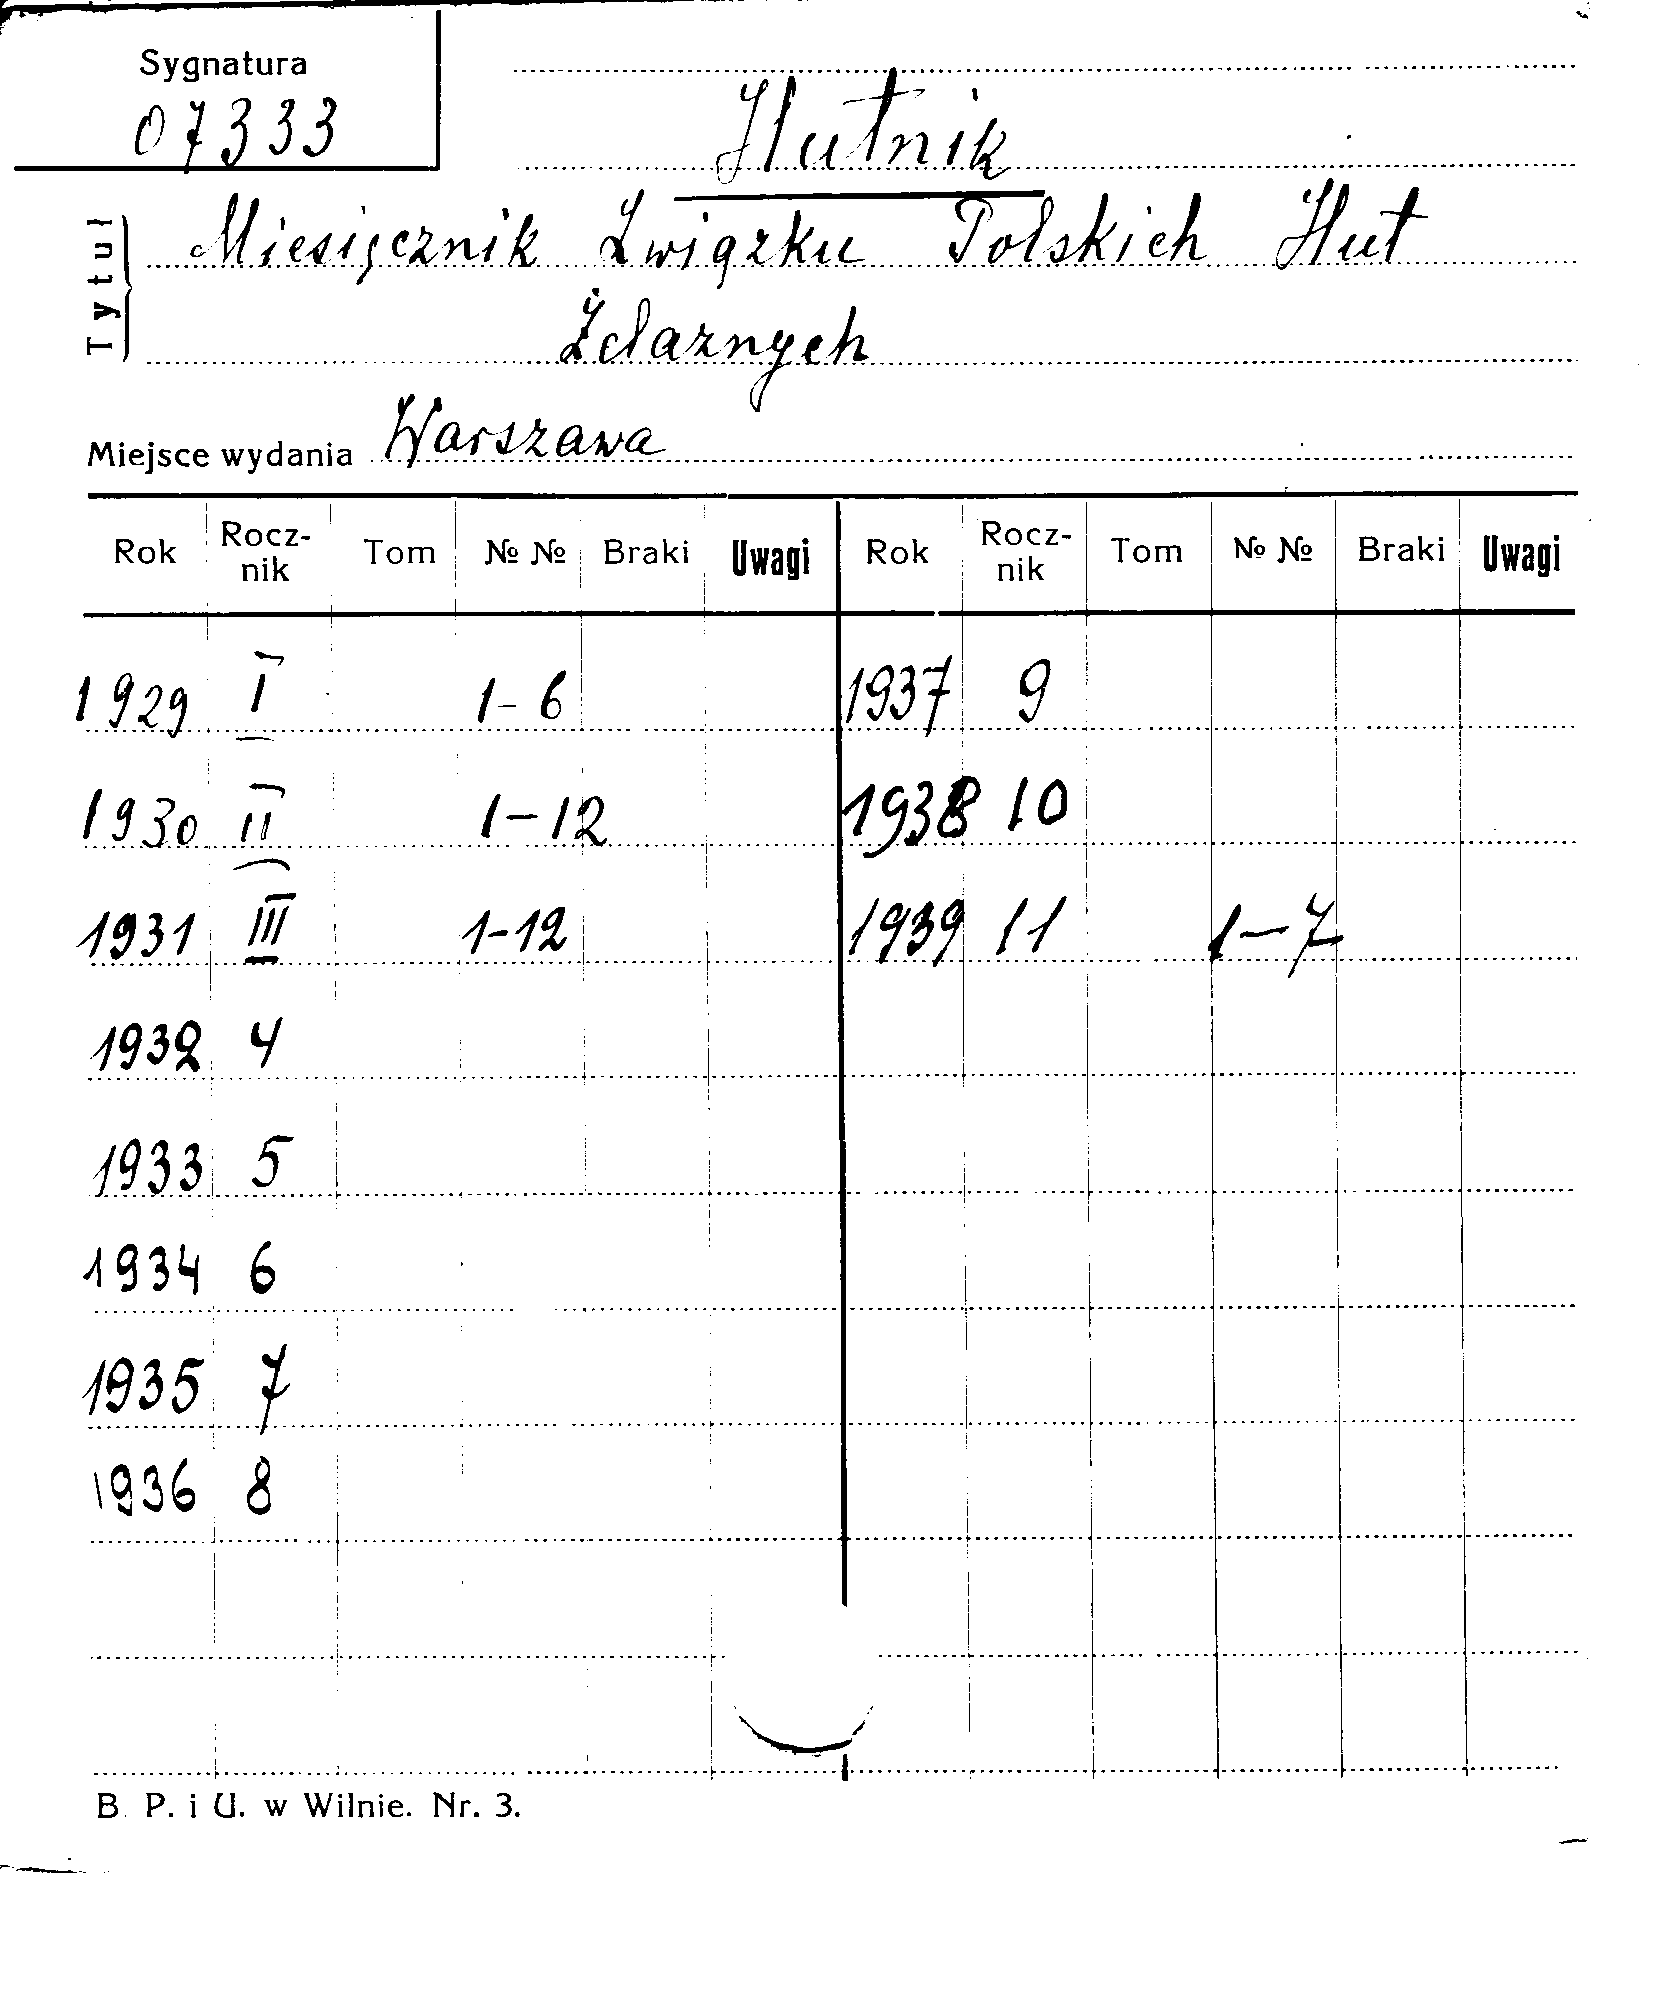 Sygnatura
07333
Hutnik
Tytuł
Miesięcznik Związku Polskich Hut
Żelaznych
Miejsce wydania Warszawa
Rok Rocz-nik Tom №№ Braki Uwagi Rok Rocz-nik Tom №№ Braki Uwagi
1929 I 1-6 1937 9
1930 II 1-12 1938 10
1931 III 1-12 1939 11 1-7
1932 4
1933 5
1934 6
1935 7
1936 8
B. P. i U. w Wilnie. Nr. 3.